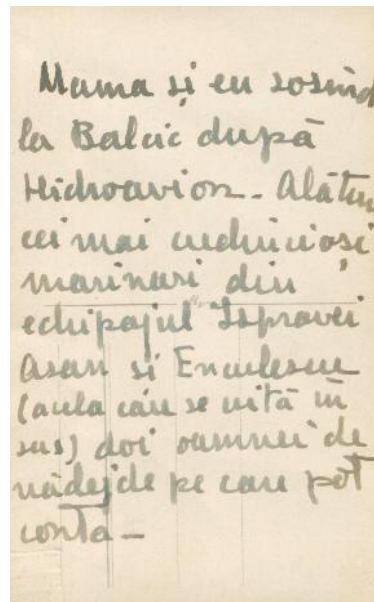 Mama și eu sosind
la Balcic după
Hidroavion - Alătur
cei mai credincioși
marinari din
echipajul Isprăvei
Asan și Enculescu
(acela care se uită în
sus) doi oameni de
nădejde pe care pot
conta -